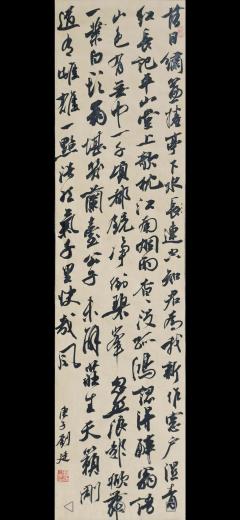 落日繡簾捲亭下水長連空知君為我新作窗户濕青
紅長記平山堂上欹枕江南烟雨杳杳没孤鴻認得醉翁語
山色有無中一千頃都鏡淨倒碧峯忽然浪起掀舞
一葉白頭翁堪笑蘭臺公子未解莊生天籟剛
道有雌雄一點浩然氣千里快哉風
庚子劉